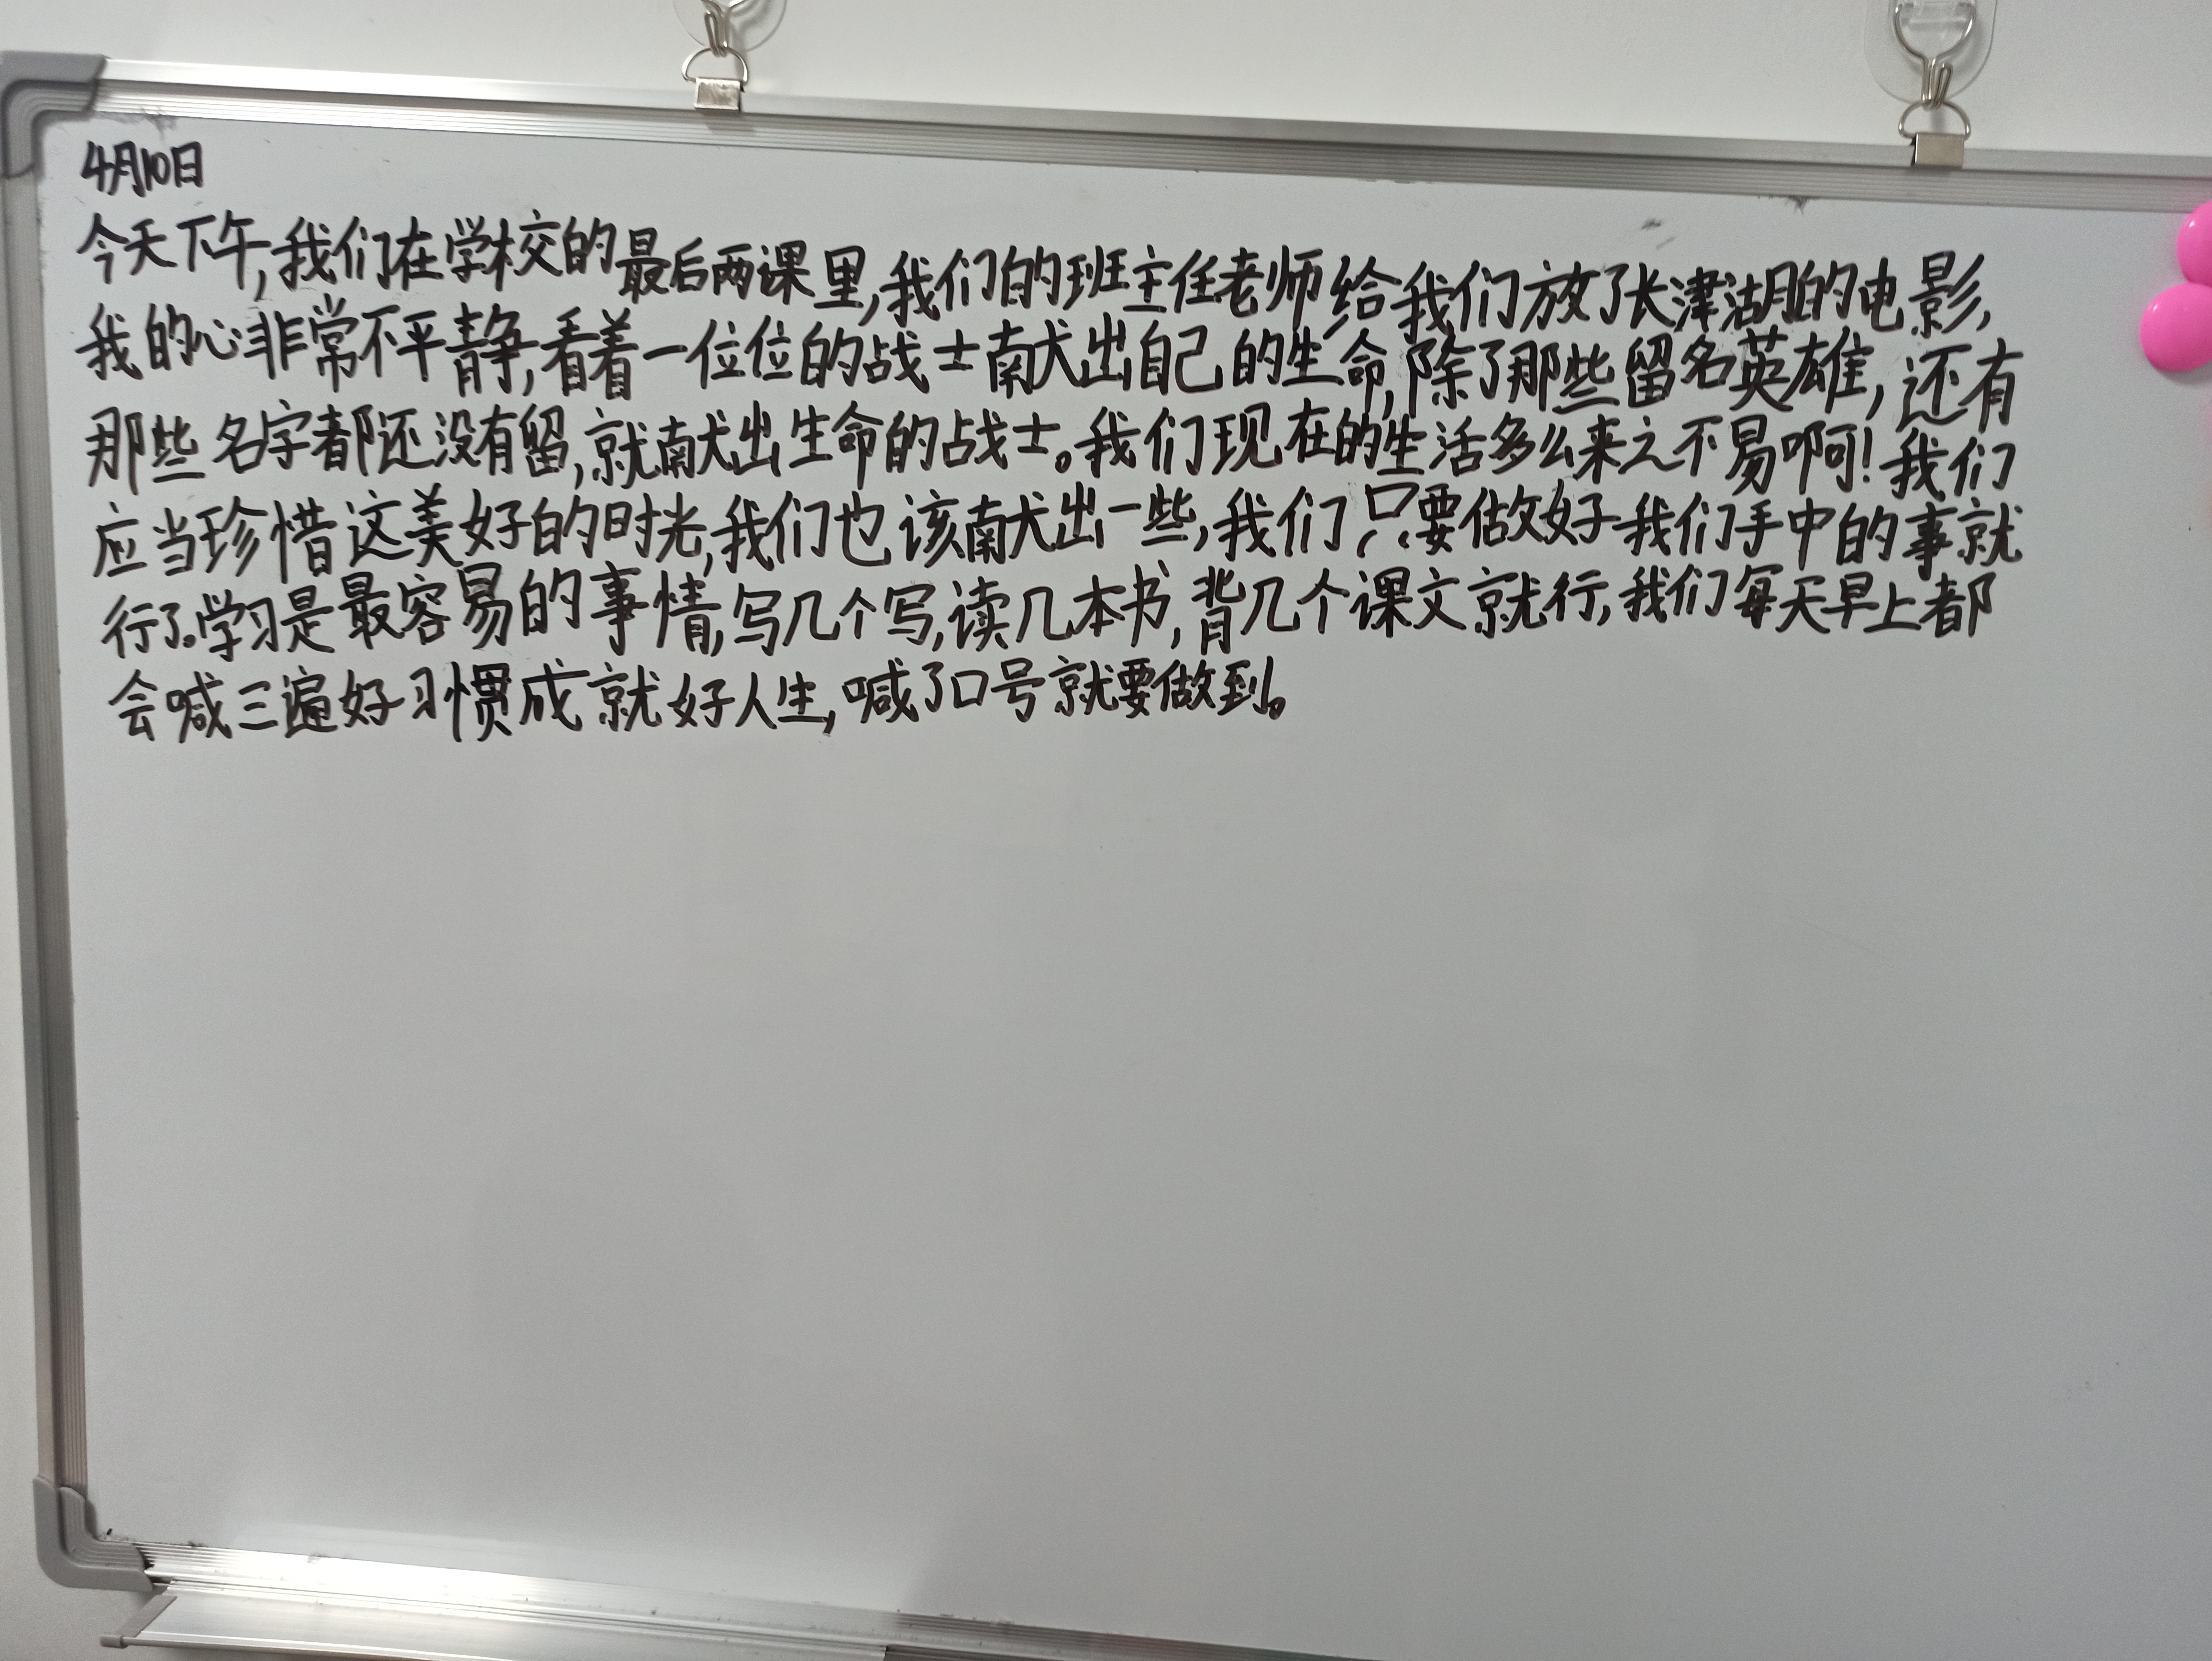 4月10日
今天下午,我们在学校的最后两课里,我们的班主任老师给我们放了长津湖的电影,
我的心非常不平静,看着一位位的战士献出自己的生命,除了那些留名英雄,还有
那些名字都还没有留,就献出生命的战士。我们现在的生活多么来之不易啊!我们
应当珍惜这美好的时光,我们也该献出一些,我们只要做好我们手中的事就
行了。学习是最容易的事情,写几个写,读几本书,背几个课文就行,我们每天早上都
会喊三遍好习惯成就好人生,喊了口号就要做到。